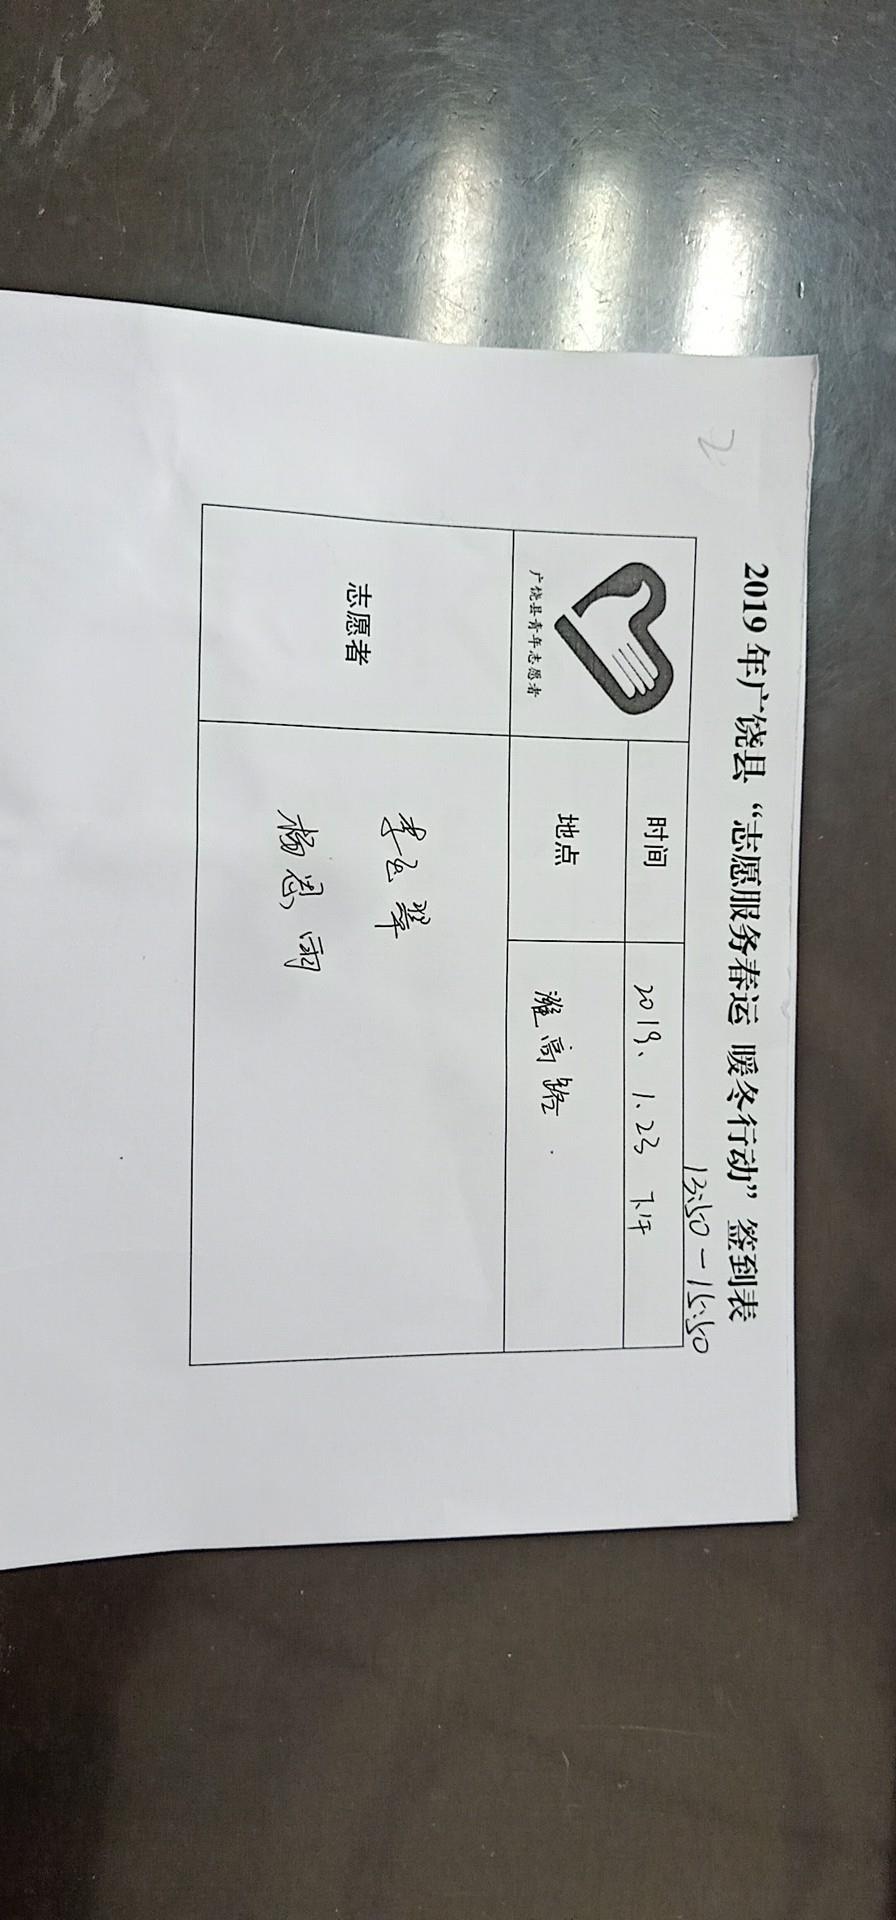 2
2019 年广饶县“志愿服务春运 暖冬行动”签到表
13:50-15:50
广饶县青年志愿者
时间
2019、1、23 下午
地点
潍高路.
志愿者
李云翠
杨恩雨